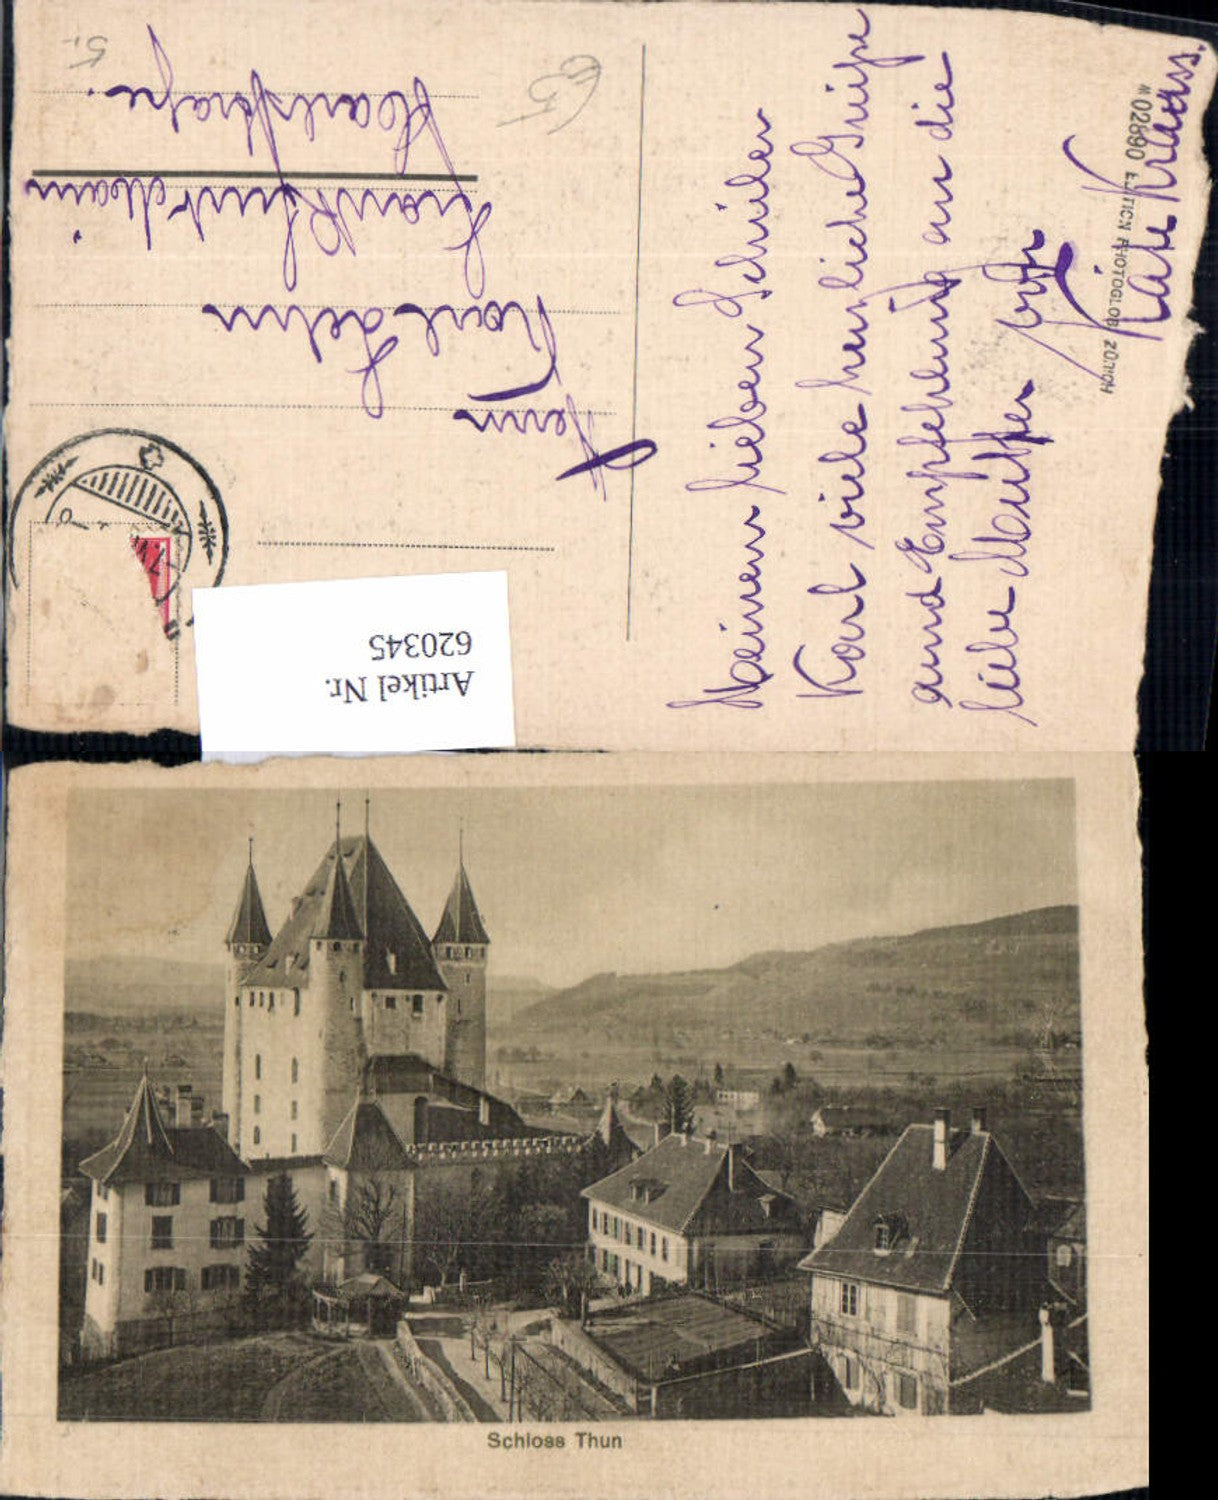 Meinem lieben Schüler
Karl viele herzliche Grüsse
und Empfehlung an die
liebe Mutter
Käte Krauss.
№ 02890 EDITION PHOTOGLOB ZÜRICH
Herrn
Karl Dehn
Frankfurt Main
Karlstraße.
65
5.-
Artikel Nr.
620345
Schloss Thun